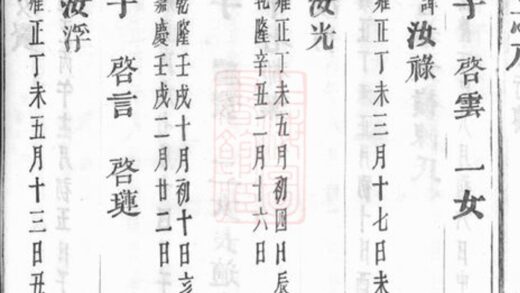 子 啓雲 一女
諱汝祿
雍正丁未三月十七日未
汝光
雍正丁未五月初四日辰
乾隆辛丑一月十六日
乾隆壬戌十月初十日亥
嘉慶壬戌二月廿二日
子 啓言 啓璉
汝浮
雍正丁未五月十三日丑